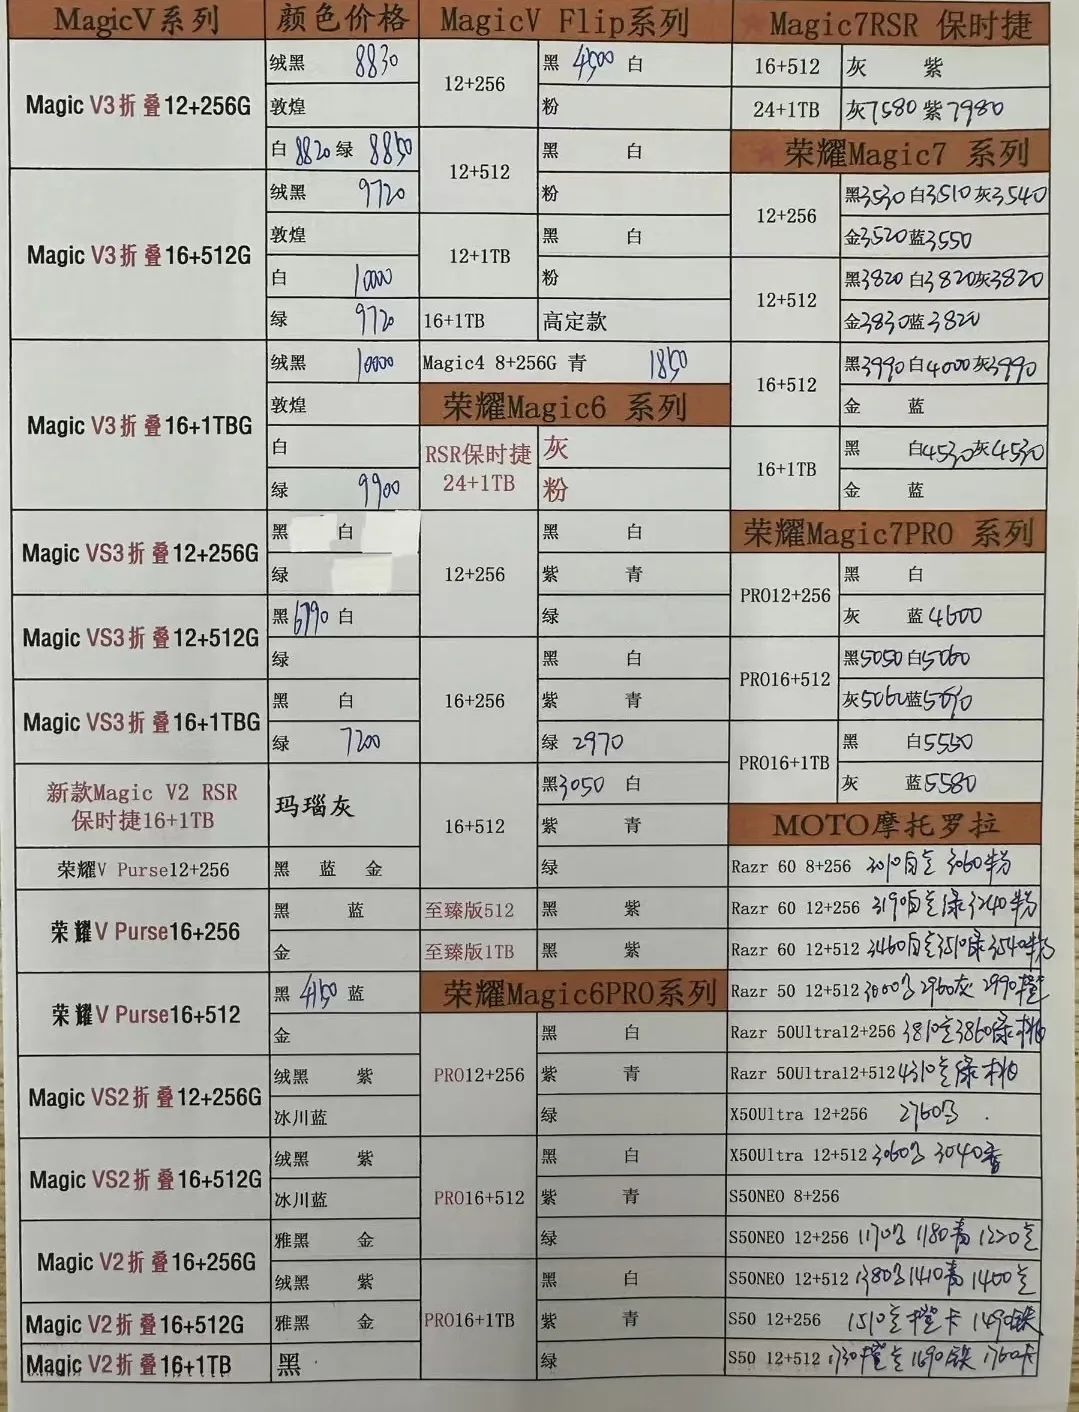 MagicV系列 颜色价格
Magic V3折叠12+256G
绒黑 8830
敦煌
白 8820 绿 8850
Magic V3折叠16+512G
绒黑 9720
敦煌
白 10000
绿 9720
Magic V3折叠16+1TBG
绒黑 10000
敦煌
白
绿 9900
Magic VS3折叠12+256G
黑 白
绿
Magic VS3折叠12+512G
黑6790 白
绿
Magic VS3折叠16+1TBG
黑 白
绿 7200
新款Magic V2 RSR
保时捷16+1TB
玛瑙灰
荣耀V Purse12+256
黑 蓝 金
荣耀V Purse16+256
黑 蓝
金
荣耀V Purse16+512
黑 4150 蓝
金
Magic VS2折叠12+256G
绒黑 紫
冰川蓝
Magic VS2折叠16+512G
绒黑 紫
冰川蓝
Magic V2折叠16+256G
雅黑 金
绒黑 紫
Magic V2折叠16+512G
雅黑 金
Magic V2折叠16+1TB
黑
MagicV Flip系列
12+256
黑 4500 白
粉
12+512
黑 白
粉
12+1TB
黑 白
粉
16+1TB 高定款
Magic4 8+256G 青 1850
荣耀Magic6 系列
RSR保时捷
24+1TB
灰
粉
12+256
黑 白
紫 青
绿
16+256
黑 白
紫 青
绿 2970
16+512
黑3050 白
紫 青
绿
至臻版512 黑 紫
至臻版1TB 黑 紫
荣耀Magic6PRO系列
PRO12+256
黑 白
紫 青
绿
PRO16+512
黑 白
紫 青
绿
PRO16+1TB
黑 白
紫 青
绿
Magic7RSR 保时捷
16+512 灰 紫
24+1TB 灰7580 紫7980
荣耀Magic7 系列
12+256
黑3530 白3510 灰3540
金3520蓝3550
12+512
黑3820 白3820灰3820
金3830蓝3820
16+512
黑3990白4000灰3990
金 蓝
16+1TB
黑 白4530灰4530
金 蓝
荣耀Magic7PRO 系列
PRO12+256
黑 白
灰 蓝4600
PRO16+512
黑5050白5060
灰5060蓝5090
PRO16+1TB
黑 白5550
灰 蓝5580
MOTO摩托罗拉
Razr 60 8+256 3060粉
Razr 60 12+256 3190 绿3240粉
Razr 60 12+512 3460 3510绿3540粉
Razr 50 12+512 2960灰 2990橙
Razr 50Ultra12+256 3810 3860绿 桃
Razr 50Ultra12+512 4310 绿 桃
X50Ultra 12+256 2760
X50Ultra 12+512 3060 3040
S50NEO 8+256
S50NEO 12+256 1170 1180青 1220
S50NEO 12+512 1380 1410青 1400
S50 12+256 1510 橙 卡 1490
S50 12+512 1730橙 1690 1760卡